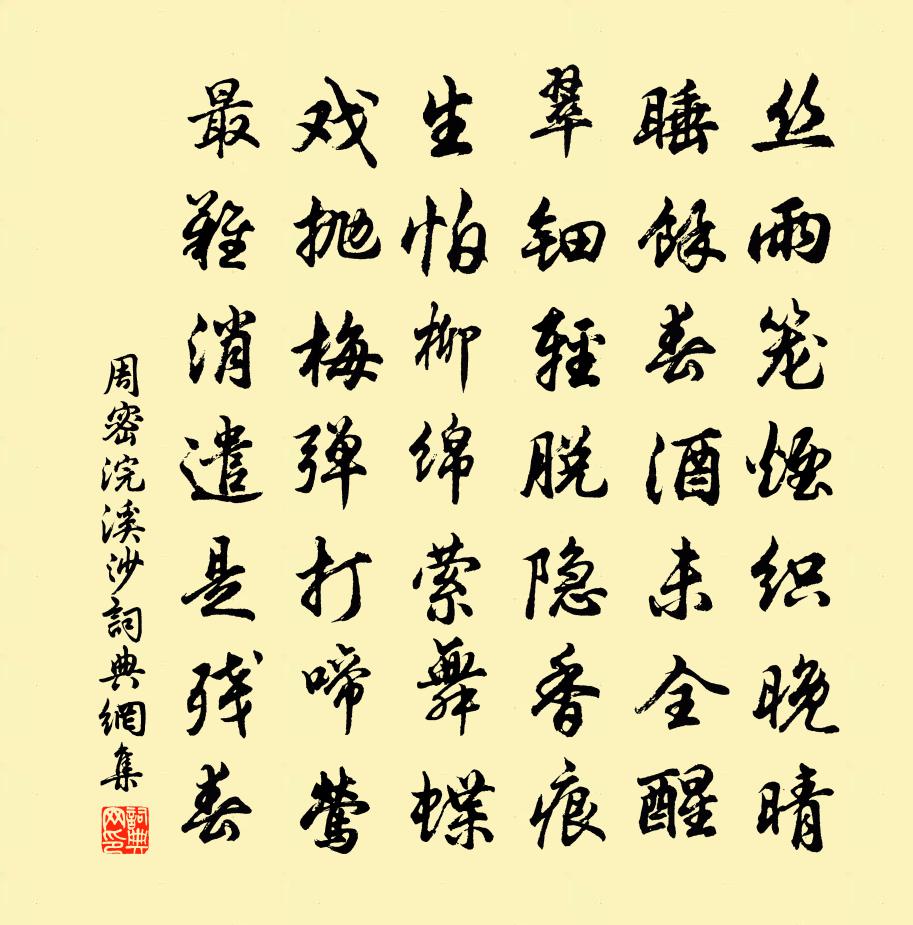 丝雨笼烟织晚晴
睡馀春酒未全醒
翠钿轻脱隐香痕
生怕柳绵萦舞蝶
戏抛梅弹打啼莺
最难消遣是残春
周密浣溪沙詞典網集
詞典网印